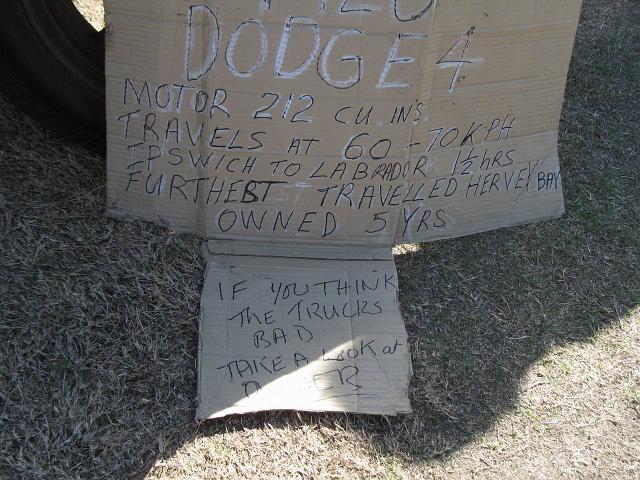 DODGE 4
MOTOR 212 CU. INS.
TRAVELS AT 60-70KPH
IPSWICH TO LABRADOR 1½ HRS
FURTHEST TRAVELLED HERVEY BAY
OWNED 5 YRS
IF YOU THINK
THE TRUCKS
BAD
TAKE A LOOK at